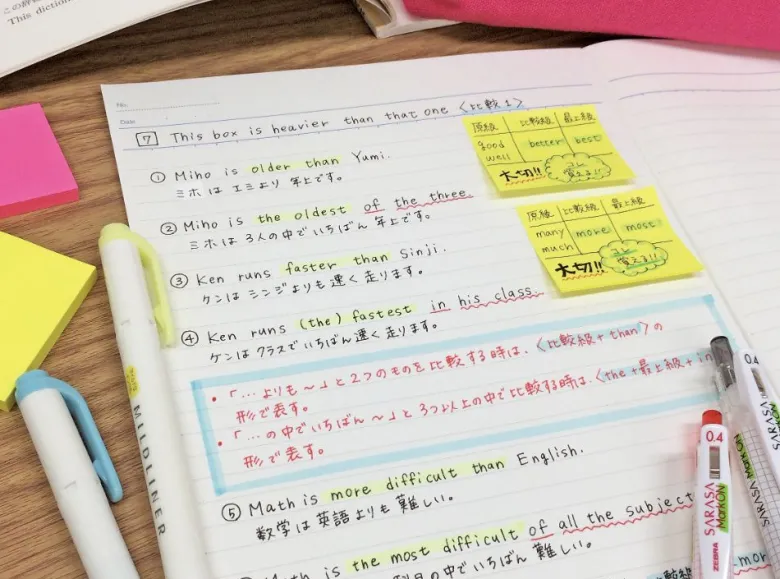 This diction
No.
Date
7 This box is heavier than that one 〈比較1〉
① Miho is older than Yumi.
ミホはエミより年上です。
② Miho is the oldest of the three.
ミホは3人の中でいちばん年上です。
③ Ken runs faster than Sinji.
ケンはシンジよりも速く走ります。
④ Ken runs (the) fastest in his class.
ケンはクラスでいちばん速く走ります。
・「…よりも〜」と2つのものを比較する時は、〈比較級+than〉の
形で表す。
・「…の中でいちばん〜」と3つ以上の中で比較する時は、〈the+最上級+in
形で表す。
⑤ Math is more difficult than English.
数学は英語よりも難しい。
Math is the most difficult of all the subject
の中でいちばん難しい。
原級 比較級 最上級
good better best
well
大切!! コレ
覚える!!
原級 比較級 最上級
many more most
much
大切!! コレ
覚える!!
MILDLINER
0.4
SARASA
MarkON
ZEBRA
0.4
SARASA
MarkON